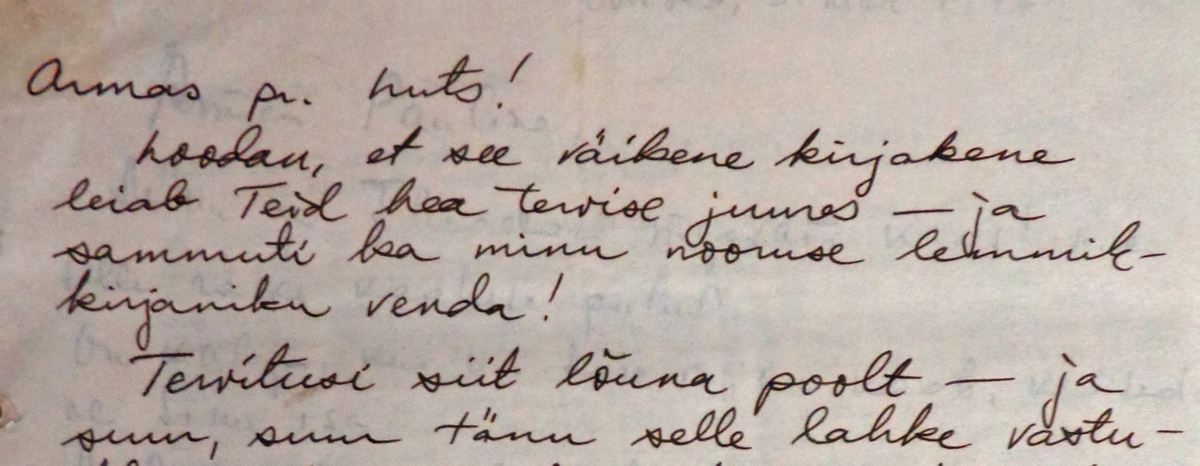 Armas pr. Nuts!
Loodan, et see väikene kirjakene
leiab Teid hea tervise juures — ja
sammuti ka minu nooruse lemmik-
kirjaniku venda!
Tervitusi siit lõuna poolt — ja
suur, suur tänu selle lahke vastu-